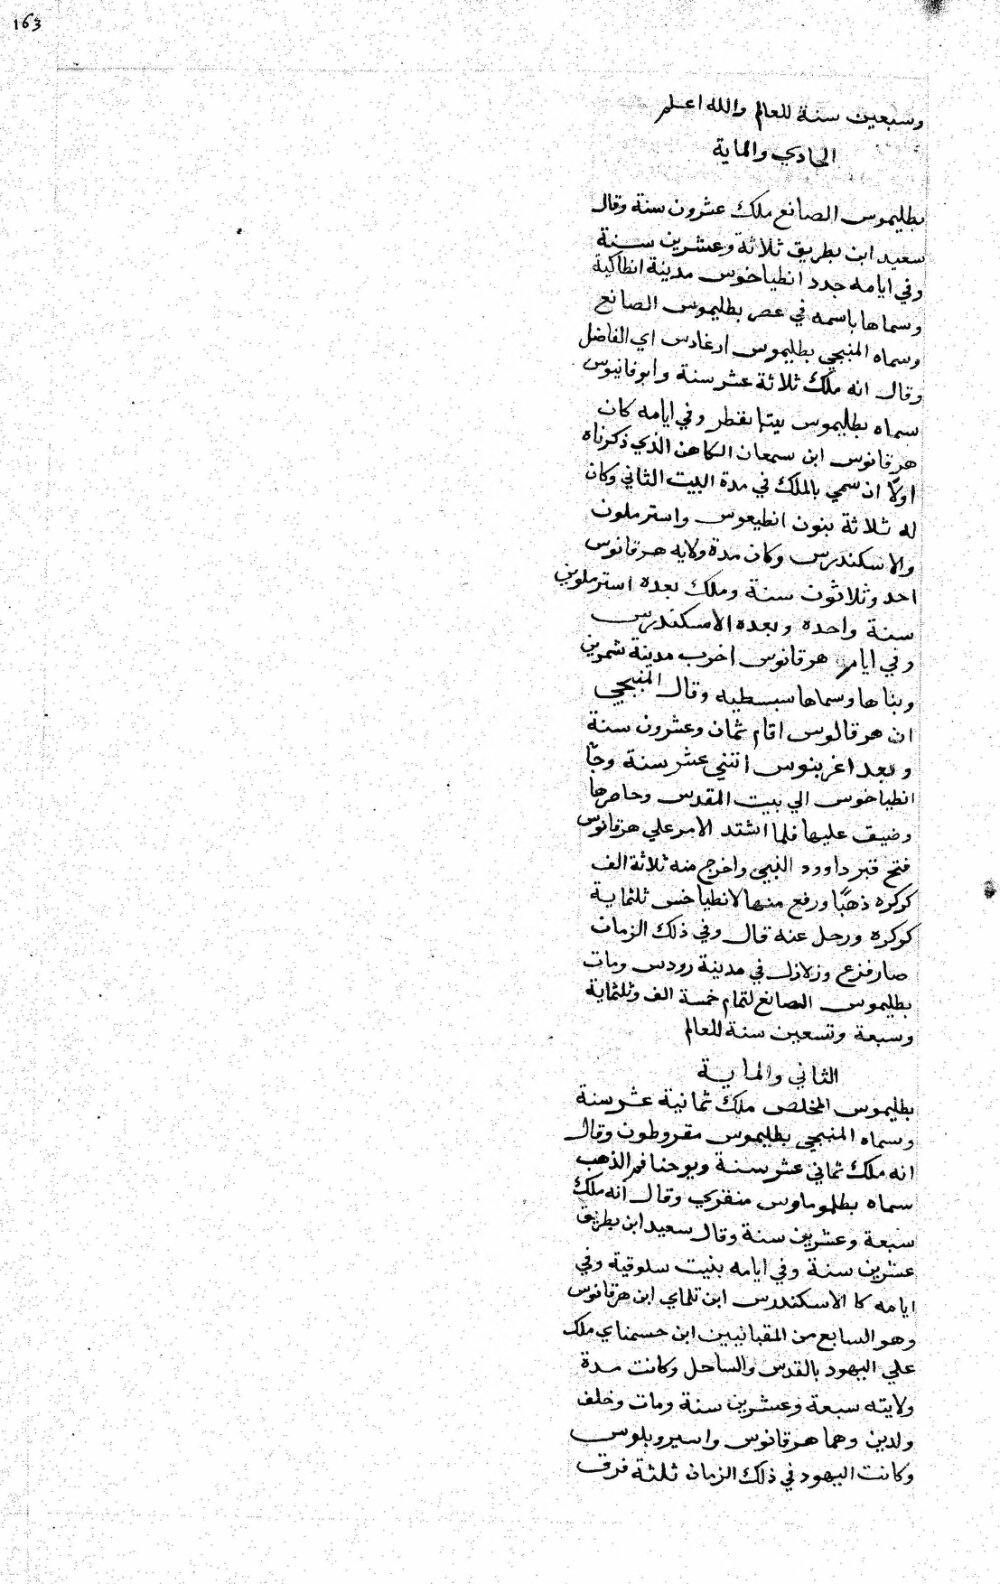 163
وسبعين سنة للعالم والله اعلم
الحادي والماية
بطليموس الصانع ملك عشرون سنة وقال
سعيد ابن بطريق ثلاثة وعشرين سنة
وفي ايامه جدد انطياخوس مدينة انطاكية
وسماها باسمه في عصر بطليموس الصانع
وسماه المنبجي بطليموس ارغادس اي الفاضل
وقال انه ملك ثلاثة عشر سنة وابوفانيوس
سماه بطليموس وفي ايامه كان
هرقانوس ابن سمعان الكاهن الذي ذكرناه
اولا ان سمي بالملك في مدة البيت الثاني وكان
له ثلاثة بنون انطيعوس واسترملون
والاسكندرس وكان مدة ولايه هرقانوس
احد وثلاثون سنة وملك بعده استرملوس
سنة واحده وبعده الاسكندرس
وفي ايام هرقانوس اخرب مدينة شمرين
وبناها وسماها سبسطيه وقال المنبجي
ان هرقالوس اقام ثمان وعشرون سنة
وبعد اغربنوس اثنني عشر سنة وجا
انطياخوس الي بيت المقدس وحاصرها
وضيف عليها فلما اشتد الامر علي هرقانوس
فتح قبر داوود النبي واخرج منه ثلاثة الف
كوكره ذهبًا ورفع منها لانطياخس ثلثماية
كوكره ورحل عنه قال وفي ذلك الزمان
صار فزع وزلازل في مدينة رودس ومات
بطليموس الصانع لتمام خمسة الف وثلثماية
وسبعة وتسعين سنة للعالم
الثاني والماية
بطليموس المخلص ملك ثمانية عشر سنة
وسماه المنبجي بطليموس مقروطون وقال
انه ملك ثماني عشر سنة ويوحنا فم الذهب
سماه بطلوماوس منفري وقال انه ملك
سبعة وعشرين سنة وقال سعيد ابن بطريق
عشرين سنة وفي ايامه بنيت سلوقية وفي
ايامه كا الاسكندرس ابن تلماي ابن هرقانوس
وهو السابع من المقبانيين ابن حسمناي ملك
علي اليهود بالقدس والساحل وكانت مدة
ولايته سبعة وعشرين سنة ومات وخلف
ولدين وهما هرقانوس واسيروبلوس
وكانت اليهود في ذلك الزمان ثلثة فرق